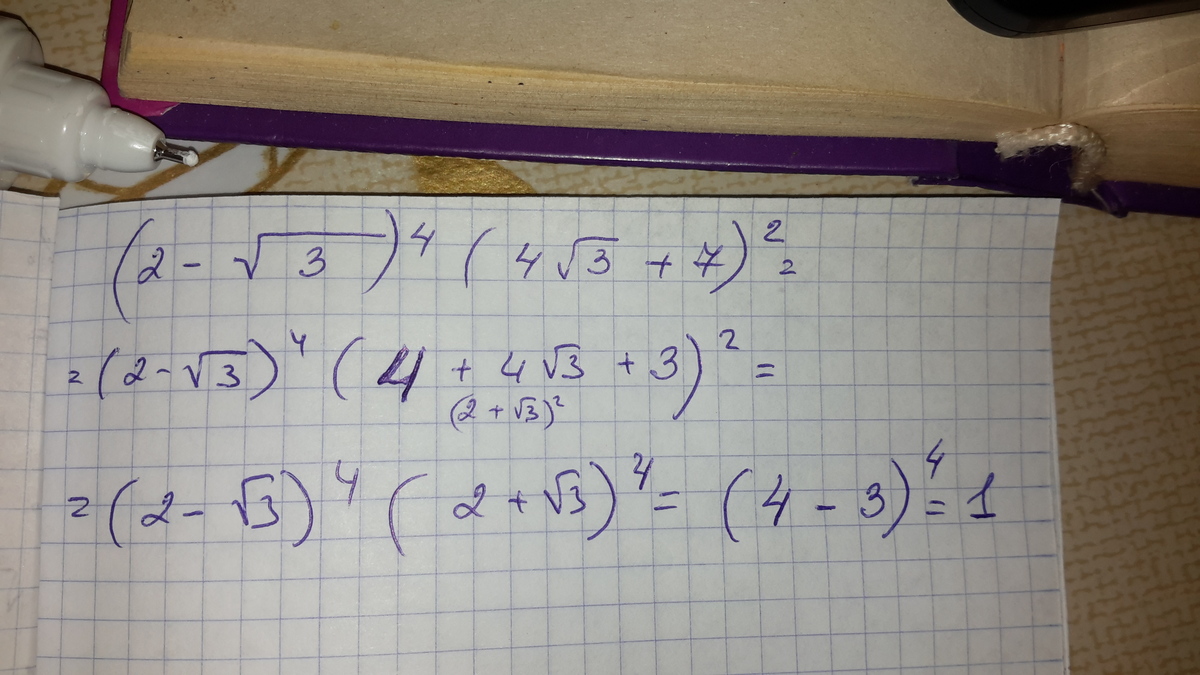 (2 - √3)⁴ (4√3 + 7)² =
= (2 - √3)⁴ (4 + 4√3 + 3)² =
(2 + √3)²
= (2 - √3)⁴ (2 + √3)⁴ = (4 - 3)⁴ = 1